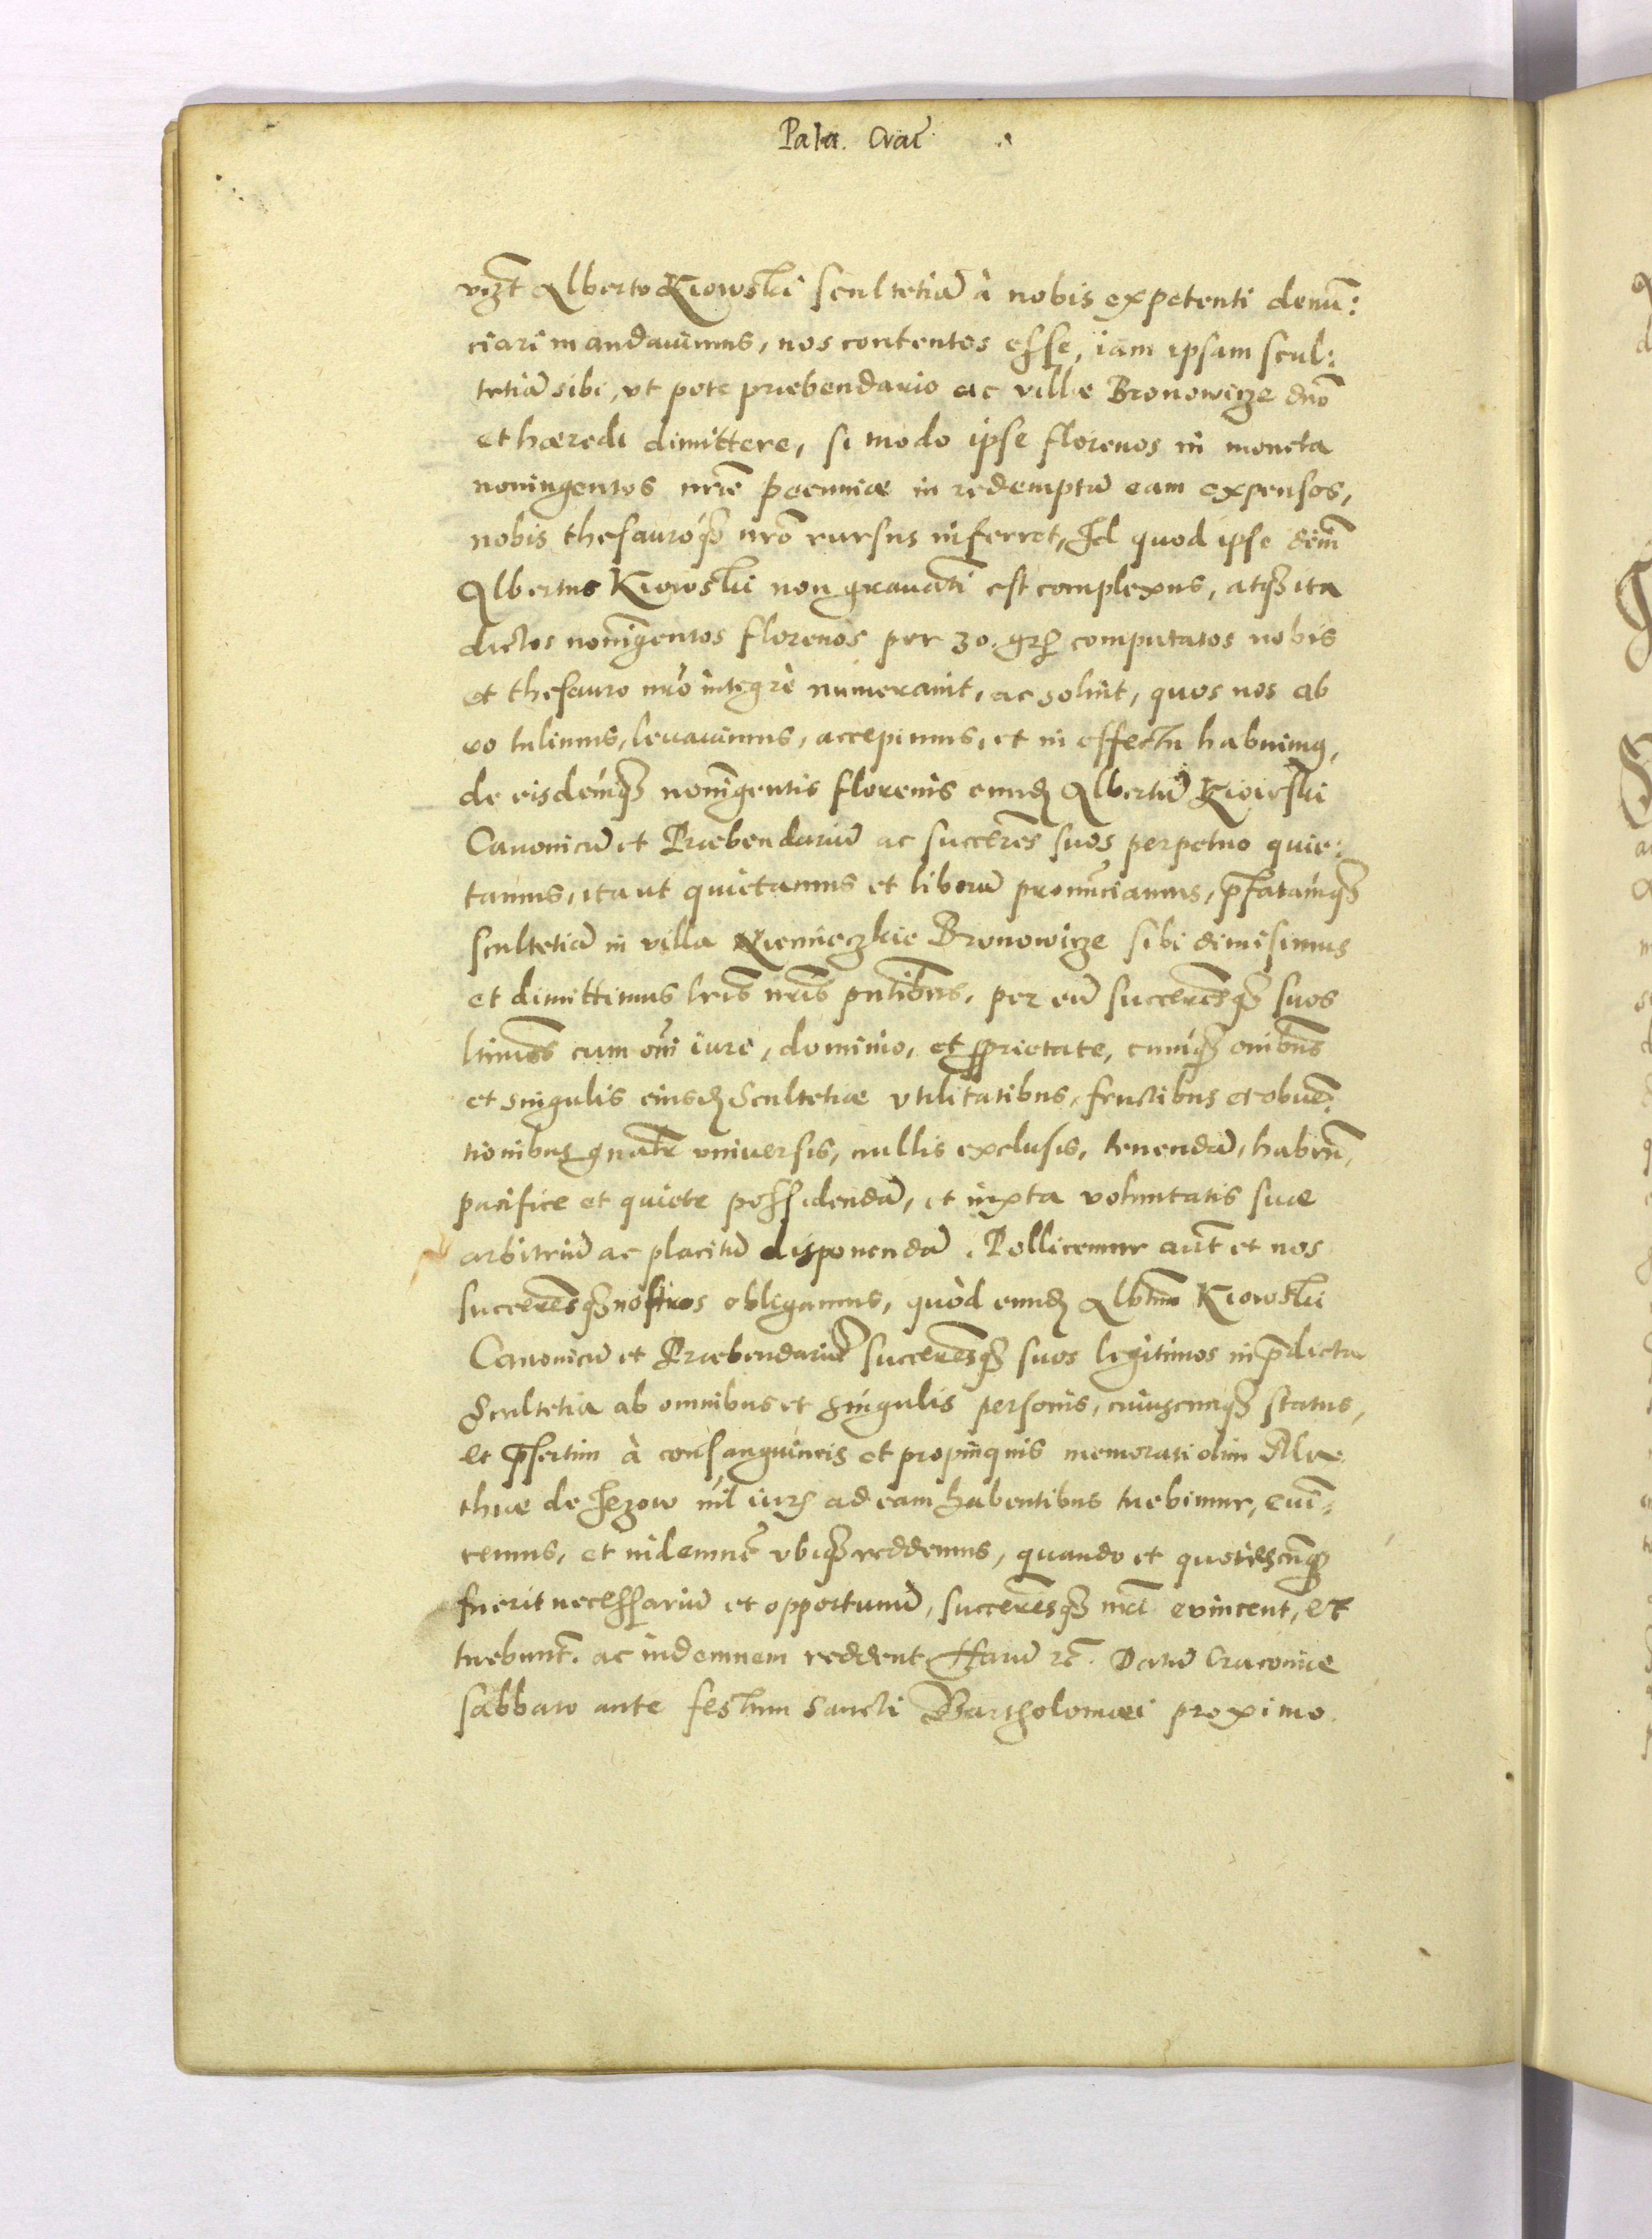 Pala. Crac̄
vizt Alberto Kiowski scultetiā à nobis expetenti denū:
ciari mandauimus, nos contentos esse, iam ipsam scul:
tetiā sibi, vt pote præbendario ac villæ Bronowicze dn̄o
et hæredi dimittere, si modo ipse florenos in moneta
noningentos nr̄æ pecuniæ in redemptū eam expensos,
nobis thesauróq3 nr̄o rursus inferret, Id quod ipse idem
Albertus Kiowski non grauatī est complexus, atq3 ita
dictos noningentos florenos per 30. gr. computatos nobis
et thesauro nr̄o integrè numerauit, ac soluit, quos nos ab
eo tulimus, leuauimus, accepimus, et in effectu habuimus,
de eisdémq3 noningentis florenis eund. Albertū Kiowski
Canonicū et Præbendariū ac succeres̄ suos perpetuo quie:
tamus, ita ut quietamus et liberū pronūciamus, p̄fatámq3
scultetiā in villa Niemieczkie Bronowicze sibi dimisimus
et dimittimus lr̄is nr̄is pn̄tibus, per eū succeres̄q3 suos
ltimōs cum om̄i iure, dominio, et ꝓprietate, cumq3 om̄ibus
et singulis eiusd. Scultetiæ vtilitatibus, fructibus et obuē:
tionibus gn̄atr̄ vniuersis, nullis exclusis, tenendā, haben̄,
pacifice et quiete possidendā, et iuxta voluntatis suæ
arbitriū ac placitū disponendā. Pollicemur aūt et nos
succeres̄q3 nostros obligamus, quòd eund. Alb̄tum Kiowski
Canonicū et Præbendariū succeres̄q3 suos legitimos in p̄dicta
Scultetia ab omnibus et singulis personis, cuiuscunq3 status,
et p̄sertim à consanguineis et propinquis memorati olim Ale
thuæ de Jezow nil iur. ad eam habentibus tuebimur, euī:
cemus, et indemnē vbiq3 reddemus, quando et quotiescunq3
fuerit necessariū et opportunū, succeres̄q3 nr̄i euincent, et
tuebunt̄. ac indemnem reddent. Harū rc̄. Datū Cracouiæ
sabbato ante festum Sancti Bartholomæi proximo.